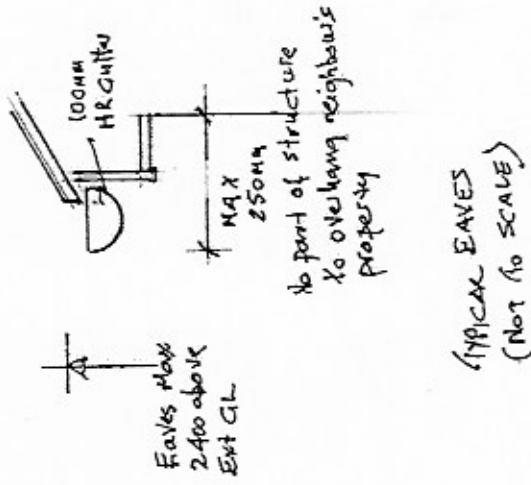 100MM
HR Gutter
MAX
250MM
No part of structure
to overhang neighbour's
property
Eaves Max
2400 above
Ext GL
TYPICAL EAVES
(NOT to SCALE)